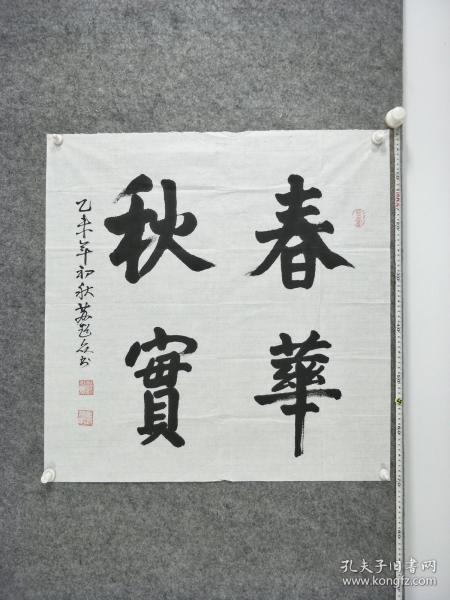 春華
秋實
乙未年初秋苏起众书
孔夫子旧书网
www.kongfz.com